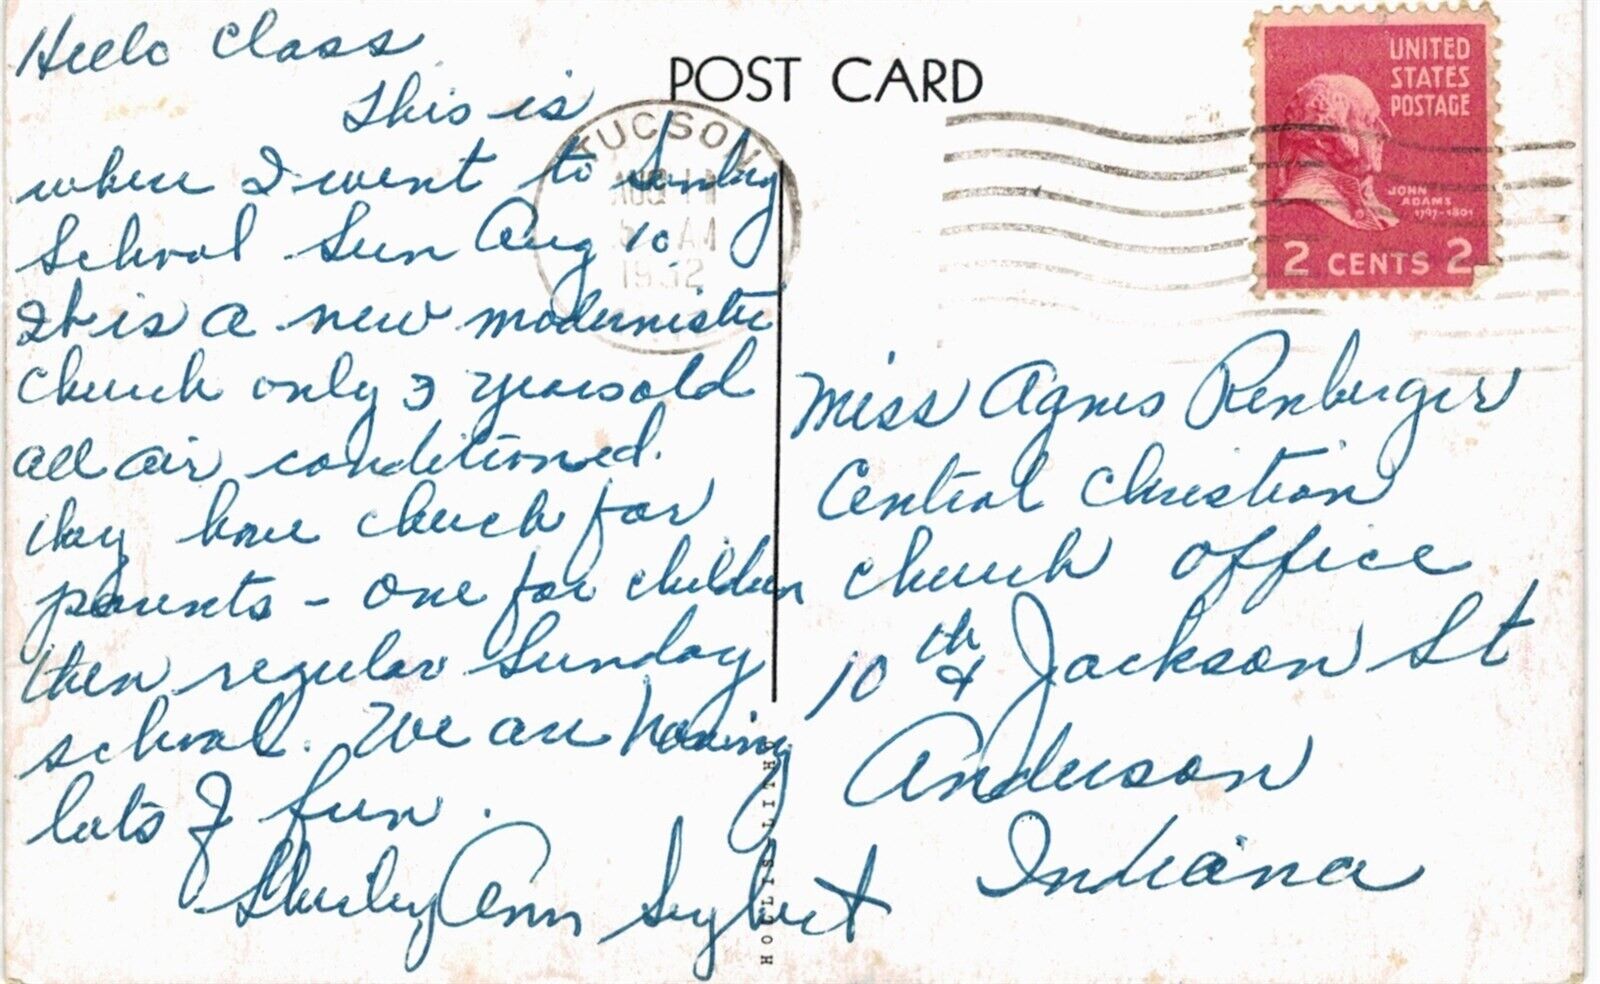 Hello Class
This is
where I went to Sunday
School Sun Aug 10.
It is a new modernistic
church only 3 years old
all air conditioned.
they have church for
parents - one for children
then regular Sunday
school. We are having
lots of fun.
Shirley Ann Seybert
POST CARD
TUCSON
AUG 11
AM
1952
UNITED
STATES
POSTAGE
JOHN
ADAMS
1797-1801
2 CENTS 2
Miss Agnes Renberger
Central Christian
church office
10th & Jackson St
Anderson
Indiana
HOLLIS LITHO